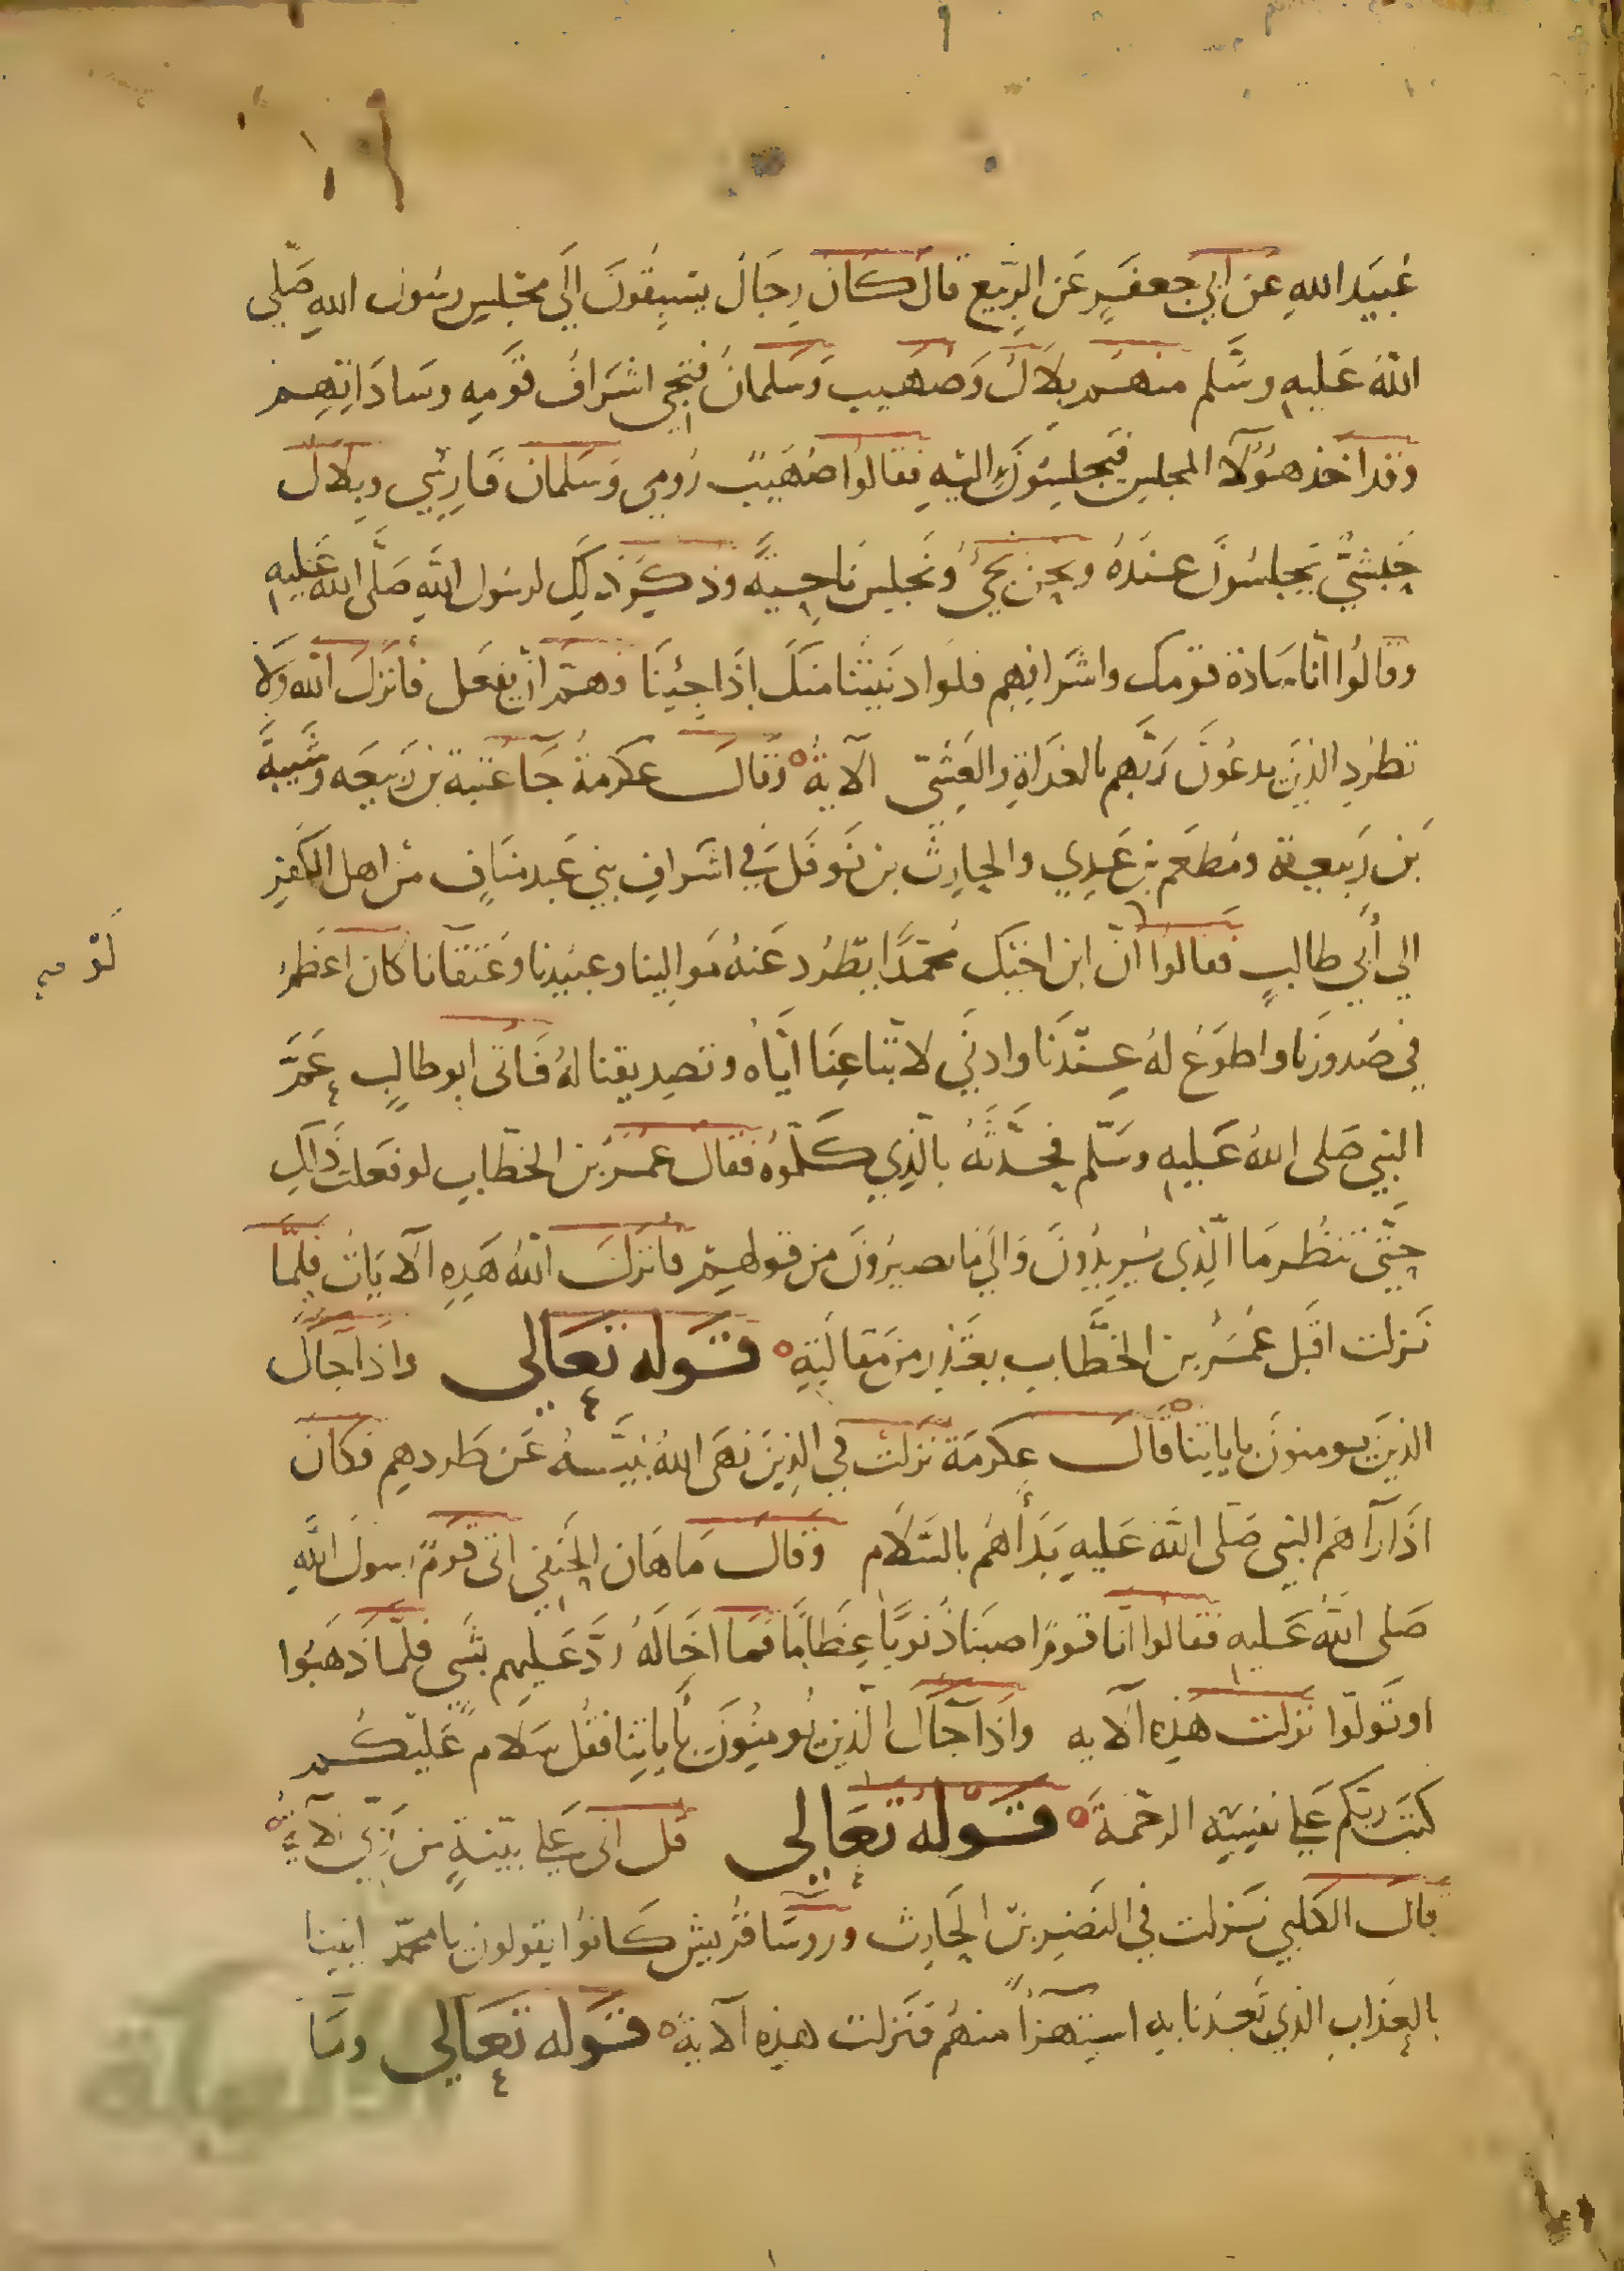 عُبَيد الله عن ابي جعفرٍ عَن الرّبيع قال كان رجَالٌ يسبقونَ الَي مجَلِس رسُول اللهِ صَلّي
اللهُ عَليهِ وسَلّم منهم بِلَالٌ وَصُهَيب وَسَلمانُ فيَجي اشرَافُ قَومِهِ وسَادَاتِهم
وقد اخذ هؤلآ المجلِس فيَجلِسُونَ اليهِ فقالوا صُهَيبٌ رُومِي وَسَلمان فَارِسِّي وبِلَال
حَبَشيٌّ يَجلسُونَ عندَهُ ونحن نجيُ ونَجلِس نَاحِيةً وذكرُوا ذلِك لرسُول اللهِ صَلَّى الله عَليهِ
وقالُوا انّا سَادة قومك واشرَافِهِم فلَوا دَنيتَنا منكَ اِذَا جِئِنَا وهمَّ اَن يفعَل فأنزَلَ الله وَلا
تطرُدِ الذينَ يدعُونَ رَبّهم بالغدَاةِ والعَشِىّ الآيةُ وقال عكرمةُ جَآ عُتبة بن رَبيعَه وشَيبةَ
بَن رَبيعة ومُطعَم بن عَدِي والحارِث بن نَوفَل في اشرافِ بَني عَبد منافٍ من اهل الكفرِ
الي أَبي طالبٍ فقالوُا انّ ابن اخيك مُحمَّدًا يَطّرُد عَنهُ مَوالِينا وعبيدنا وعُتقآنا كان اعظمُ
في صُدورنَا واطوَعُ لهُ عِندَنَا وادنَي لاتّباعِنَا ايَّاهُ وتصدِيقنا لهُ فَاتى ابو طالبٍ عَمَّ
النبي صَلى اللهُ عَليهِ وسَلّم فحَدَّثهُ بالذِي كلّموُه فقال عُمَرُ بن الخطّاب لو فَعلتَ ذَالِك
حتّى تنظُر مَا الّذِى يُريدُونَ وَالَي مَا يصيرُونَ من قولهِم فانزَلَ اللهُ هَذِهِ الآيَاتُ فلمَّا
نَزلت اقبَل عُمَرُ بن الخطَّاب يعتَذِر من مَقالَتِهِ قوله تعَالى واذَا جآك
الذينَ يومنونَ باياتِنا قالَ عِكرمَة نَزلت في الذِينَ نَهَى اللهُ نبيَّهُ عَن طَردهِم فكان
اذَا رآهَم النبِي صَلى اللهُ عَليهِ بَدَأهُم بالسَلَام وقال مَاهَان الحَنَفي اتى قومٌ رسولَ اللهِ
صَلى اللهُ عَليه فقالوا انّا قومٌ اصبنَا ذُنوبًا عِظَامًا فمَا اخَالهُ ردَّ عَليهم بشَى فلمّا ذهَبُوا
اوتَولّوا نزلت هذِهِ الآيه واذَا جآك الّذين يُومنِونَ بأياتِنا فقُل سَلام عَليكُم
كتبَ ربّكم عَلي نفِسِهِ الرحمَةَ قوله تعَالى قل انى عَلي بيّنةٍ من رَبّي الآيةُ
قال الكلبي نَزلت في النَضِر بن الحَارِث ورؤسَا قريش كَانوُا يقولون يا محمّد ايتِنا
بالعذَابِ الذي تَعِدنا بهِ استهزآً منهُم فنَزلت هذِه الآيةُ قوله تعَالي ومَا